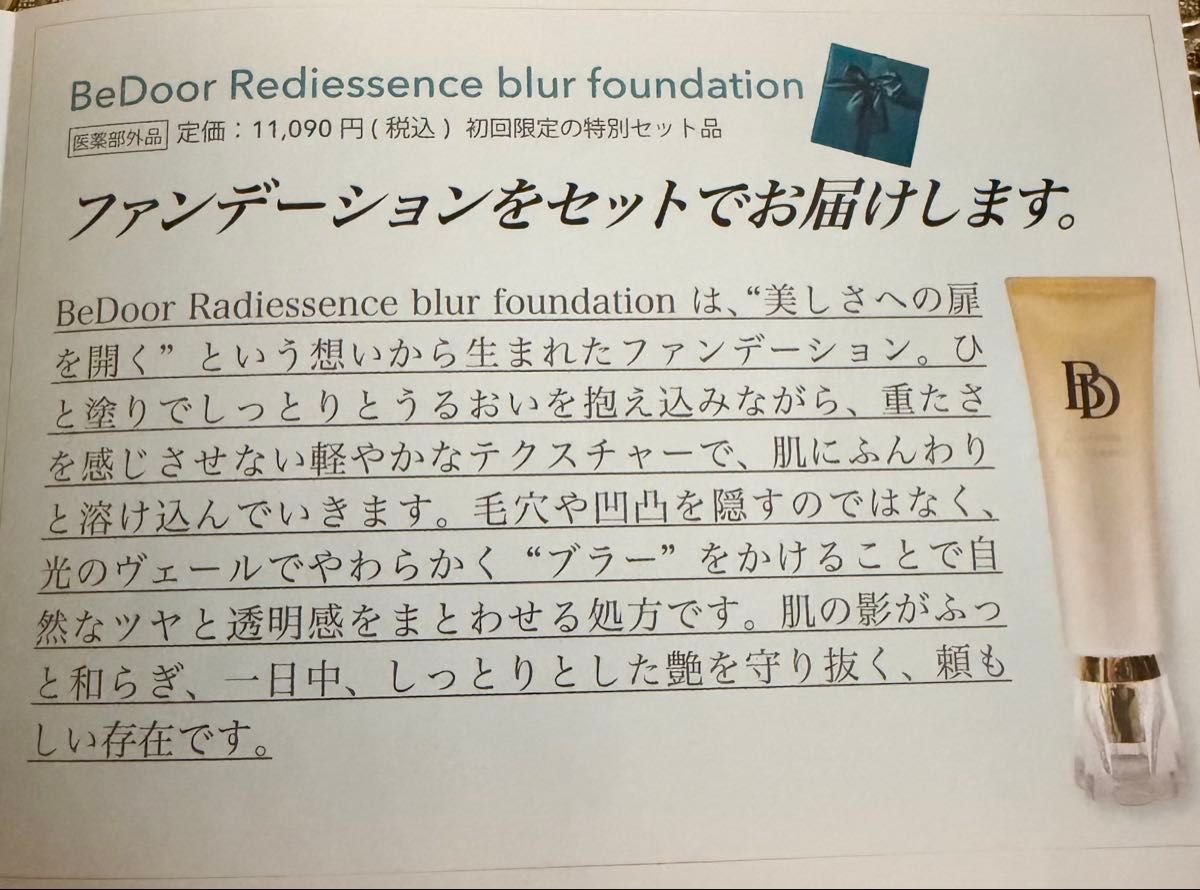 BeDoor Rediessence blur foundation
医薬部外品 定価：11,090 円 ( 税込 ) 初回限定の特別セット品
ファンデーションをセットでお届けします。
BeDoor Radiessence blur foundation は、“美しさへの扉
を開く” という想いから生まれたファンデーション。ひ
と塗りでしっとりとうるおいを抱え込みながら、重たさ
を感じさせない軽やかなテクスチャーで、肌にふんわり
と溶け込んでいきます。毛穴や凹凸を隠すのではなく、
光のヴェールでやわらかく “ブラー” をかけることで自
然なツヤと透明感をまとわせる処方です。肌の影がふっ
と和らぎ、一日中、しっとりとした艶を守り抜く、頼も
しい存在です。
BD